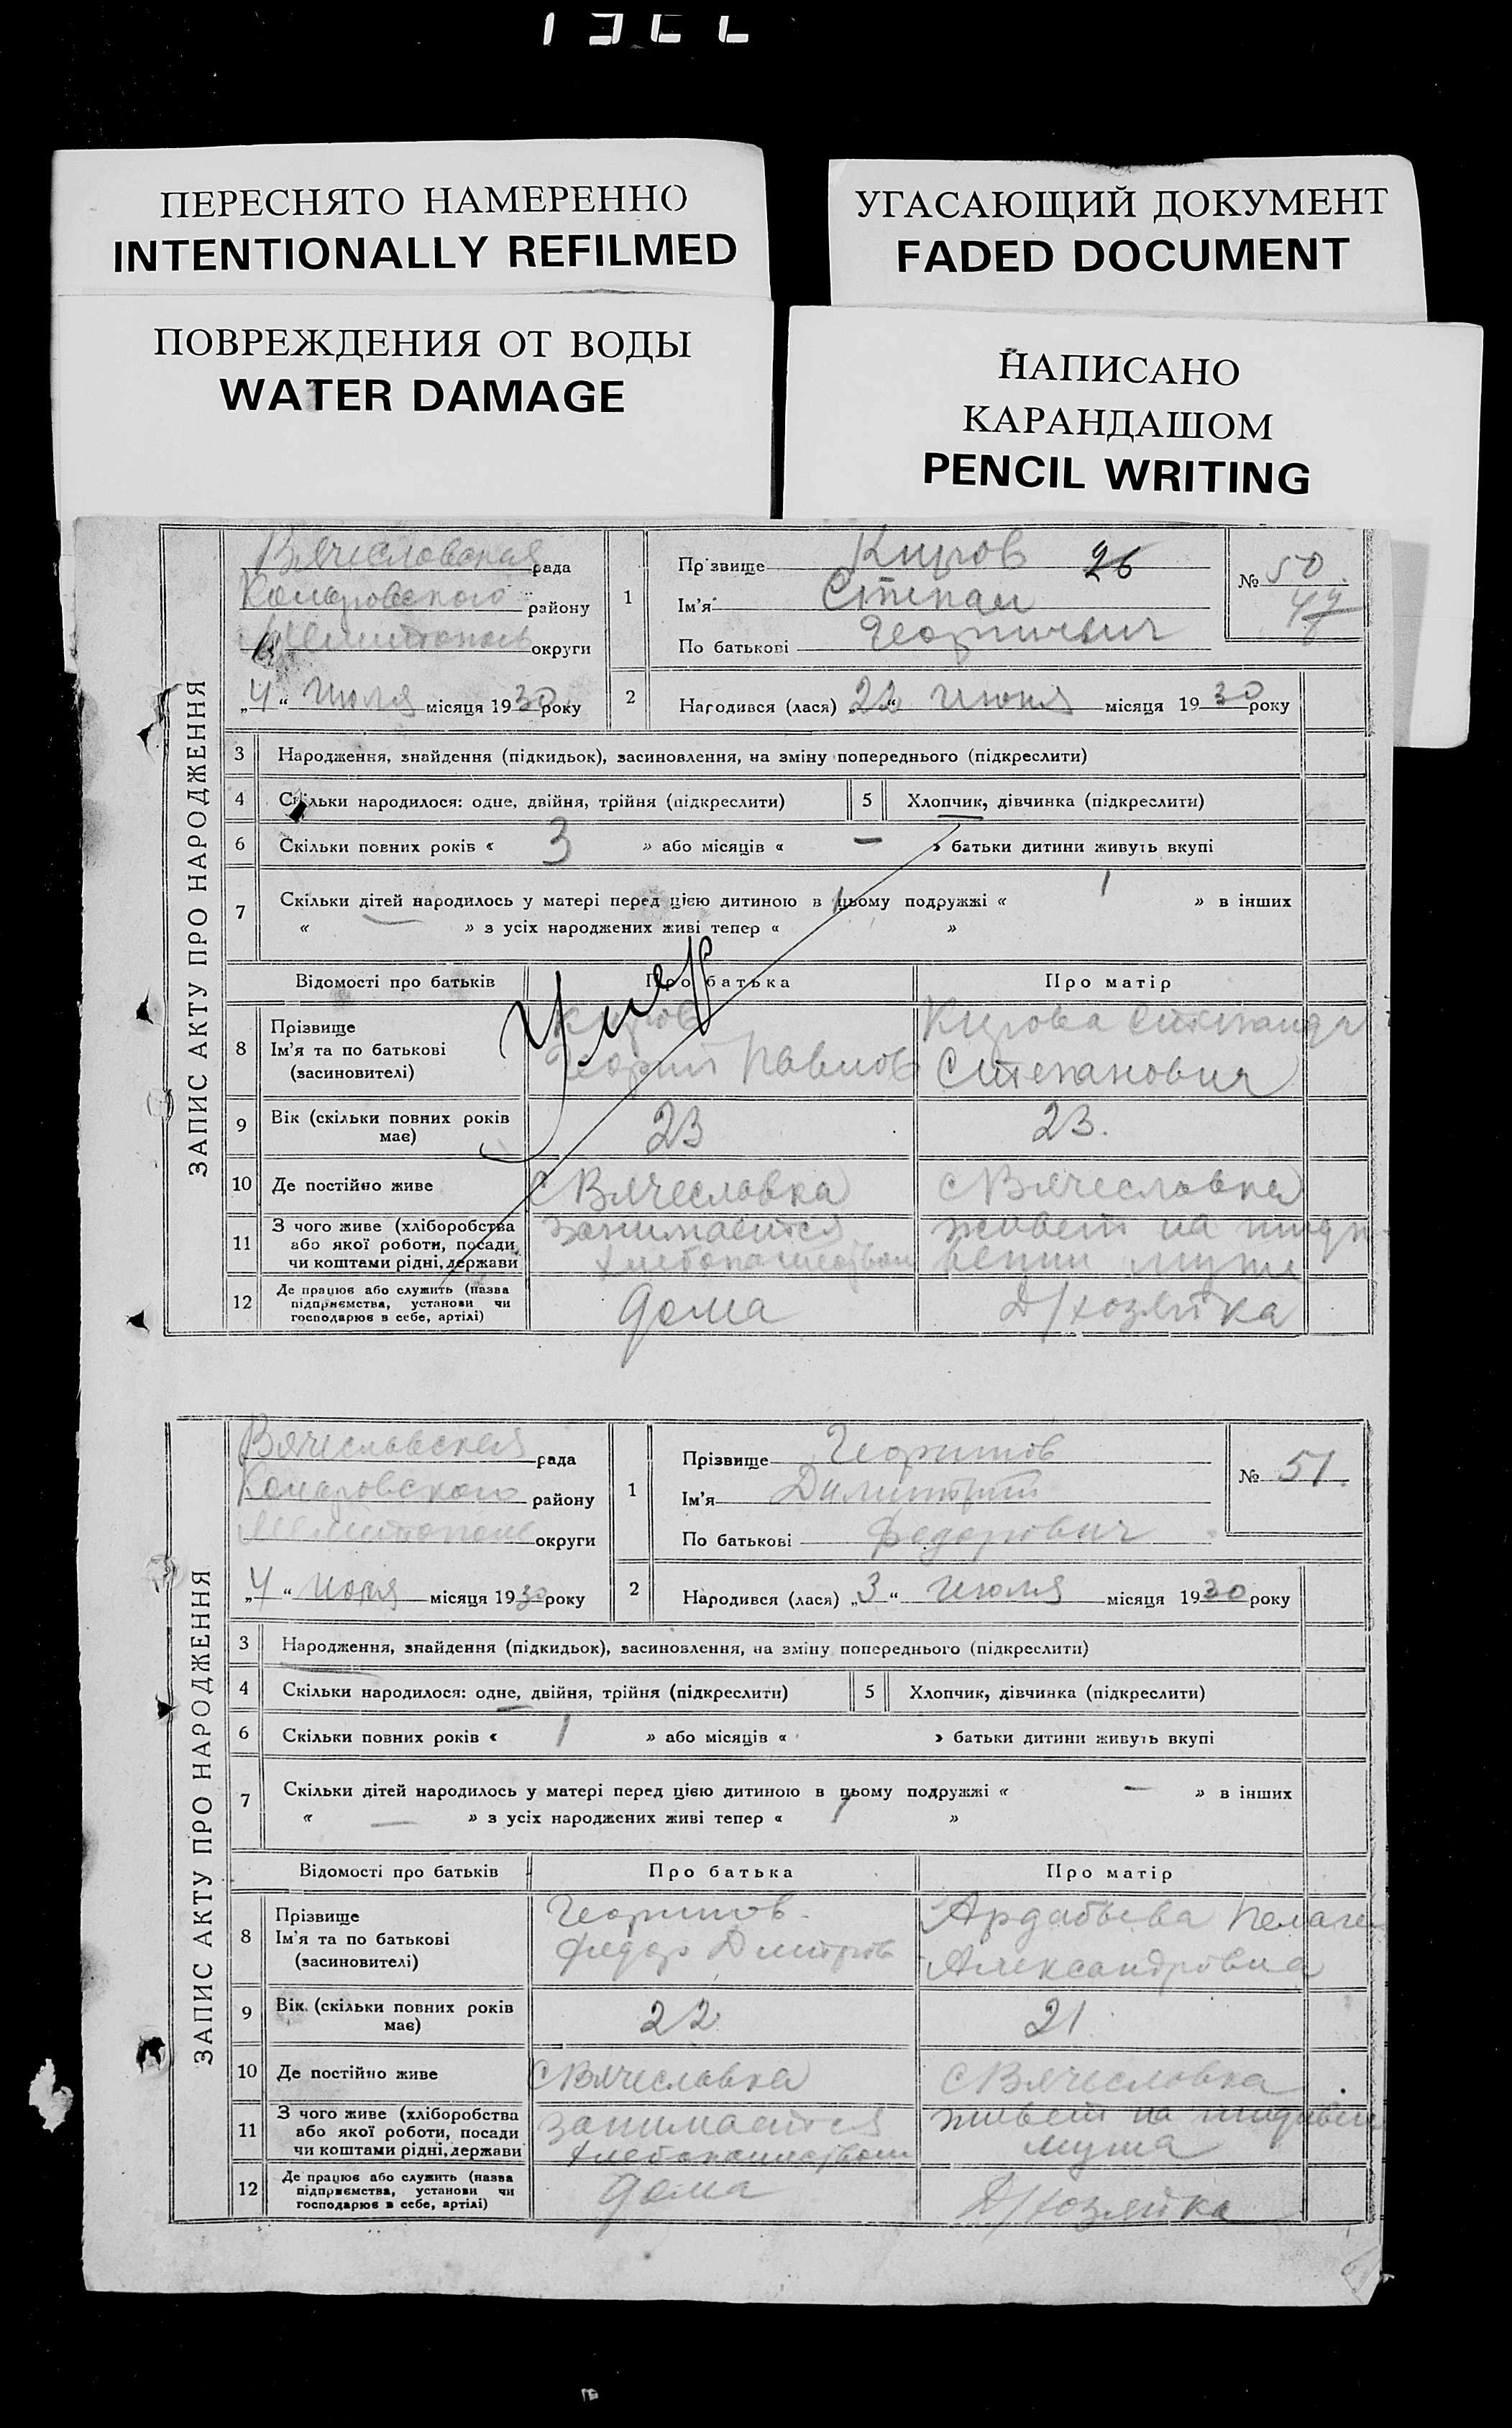 ПЕРЕСНЯТО НАМЕРЕННО
INTENTIONALLY REFILMED
УГАСАЮЩИЙ ДОКУМЕНТ
FADED DOCUMENT
ПОВРЕЖДЕНИЯ ОТ ВОДЫ
WATER DAMAGE
НАПИСАНО
КАРАНДАШОМ
PENCIL WRITING
ЗАПИС АКТУ ПРО НАРОДЖЕННЯ
Вячеславская рада
Комаровского району
округи
„4“ июля місяця 1930 року
1
Прізвище Киров 26
Ім'я Степан
По батькові Георгиевич
№ 50
2 Народився (лася) „22“ июня місяця 1930 року
3 Народження, знайдення (підкидьок), засиновлення, на зміну попереднього (підкреслити)
4 Скільки народилося: одне, двійня, трійня (підкреслити) 5 Хлопчик, дівчинка (підкреслити)
6 Скільки повних років « 3 » або місяців « — » батьки дитини живуть вкупі
7 Скільки дітей народилось у матері перед цією дитиною в цьому подружжі « 1 » в інших
« — » з усіх народжених живі тепер « »
Відомості про батьків Про батька Про матір
Умер
8 Прізвище
Ім'я та по батькові
(засиновителі)
Киров
Георгий Павлов
Кирова
Степанович
9 Вік (скільки повних років має) 23 23.
10 Де постійно живе с Вячеславка с Вячеславка
11 З чого живе (хліборобства
або якої роботи, посади
чи коштами рідні, держави
занимается
хлебопашеством
живет на
мужа
12 Де працює або служить (назва
підприємства, установи чи
господарює в себе, артілі)
дома Д/хозяйка
ЗАПИС АКТУ ПРО НАРОДЖЕННЯ
Вячеславская рада
Комаровского району
округи
„4“ июля місяця 1930 року
1
Прізвище Георгиов
Ім'я Димитрий
По батькові Федорович
№ 51.
2 Народився (лася) „3“ июля місяця 1930 року
3 Народження, знайдення (підкидьок), засиновлення, на зміну попереднього (підкреслити)
4 Скільки народилося: одне, двійня, трійня (підкреслити) 5 Хлопчик, дівчинка (підкреслити)
6 Скільки повних років « 1 » або місяців « » батьки дитини живуть вкупі
7 Скільки дітей народилось у матері перед цією дитиною в цьому подружжі « — » в інших
« — » з усіх народжених живі тепер « 1 »
Відомості про батьків Про батька Про матір
8 Прізвище
Ім'я та по батькові
(засиновителі)
Георгиов.
Федор Дмитров
Ардабьева Пелаге
Александровна
9 Вік (скільки повних років має) 22 21
10 Де постійно живе с Вячеславка с Вячеславка
11 З чого живе (хліборобства
або якої роботи, посади
чи коштами рідні, держави
занимается
хлебопашеством
живет на
мужа
12 Де працює або служить (назва
підприємства, установи чи
господарює в себе, артілі)
дома Д/хозяйка